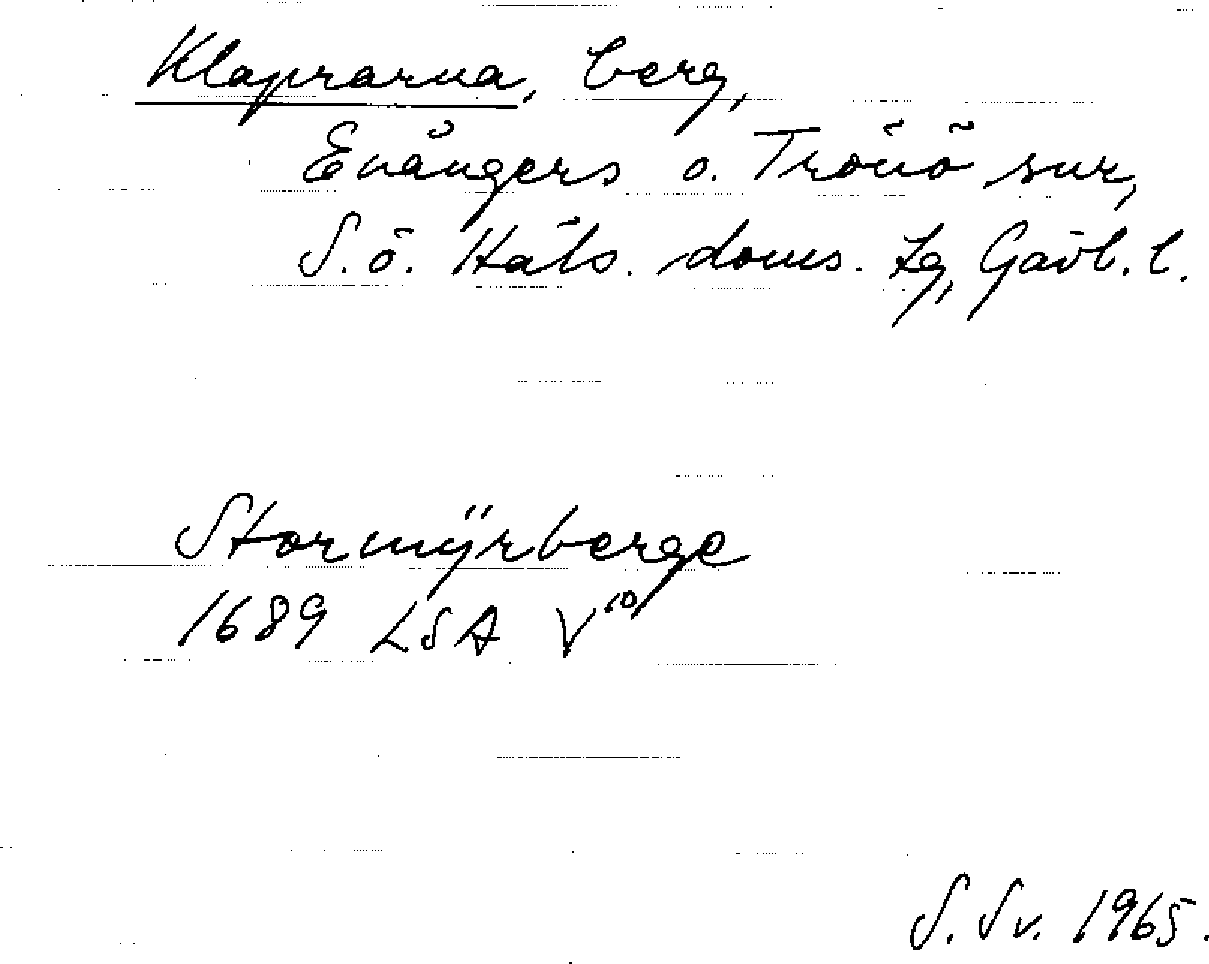 Klaprarna, berg,
Enångers o. Trönö snr,
S. ö. Häls. doms. tg, Gävl. l.
Stormyrberge
1689 LSA V¹⁰
S. Sv. 1965.